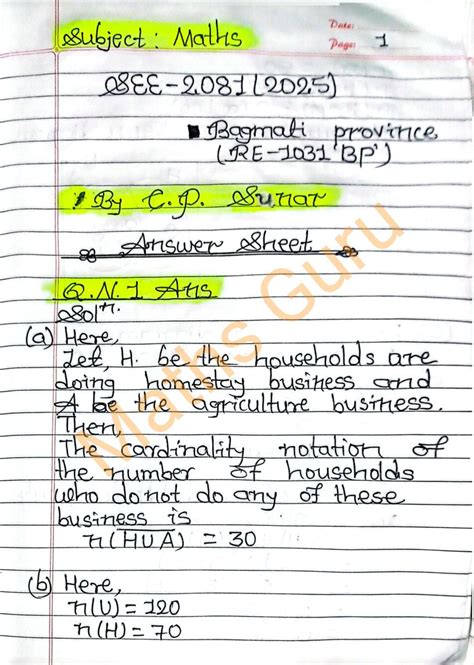 Date:
Subject: Maths
Page: 1
SEE-2081(2025)
Bagmati province
(RE-1031'BP')
By C.P. Sunar
Answer Sheet
Q.N.1 Ans
Solⁿ.
(a) Here,
Let, H. be the households are
doing homestay business and
A be the agriculture business.
Then,
The cardinality notation of
the number of households
who do not do any of these
business is
n(H̅U̅A̅) = 30
(b) Here,
n(U) = 120
n(H) = 70
Maths Guru